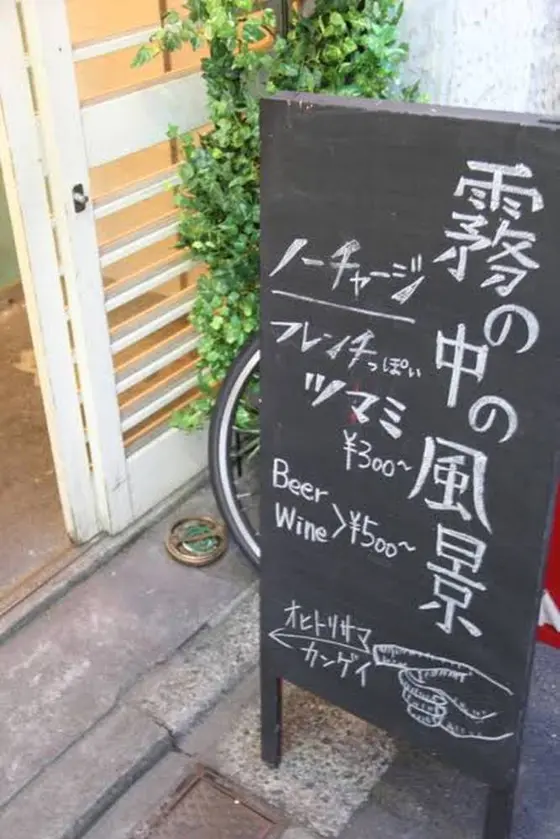 霧の中の風景
ノーチャージ
フレンチっぽい
ツマミ
¥300~
Beer
Wine > ¥500~
オヒトリサマ
カンゲイ